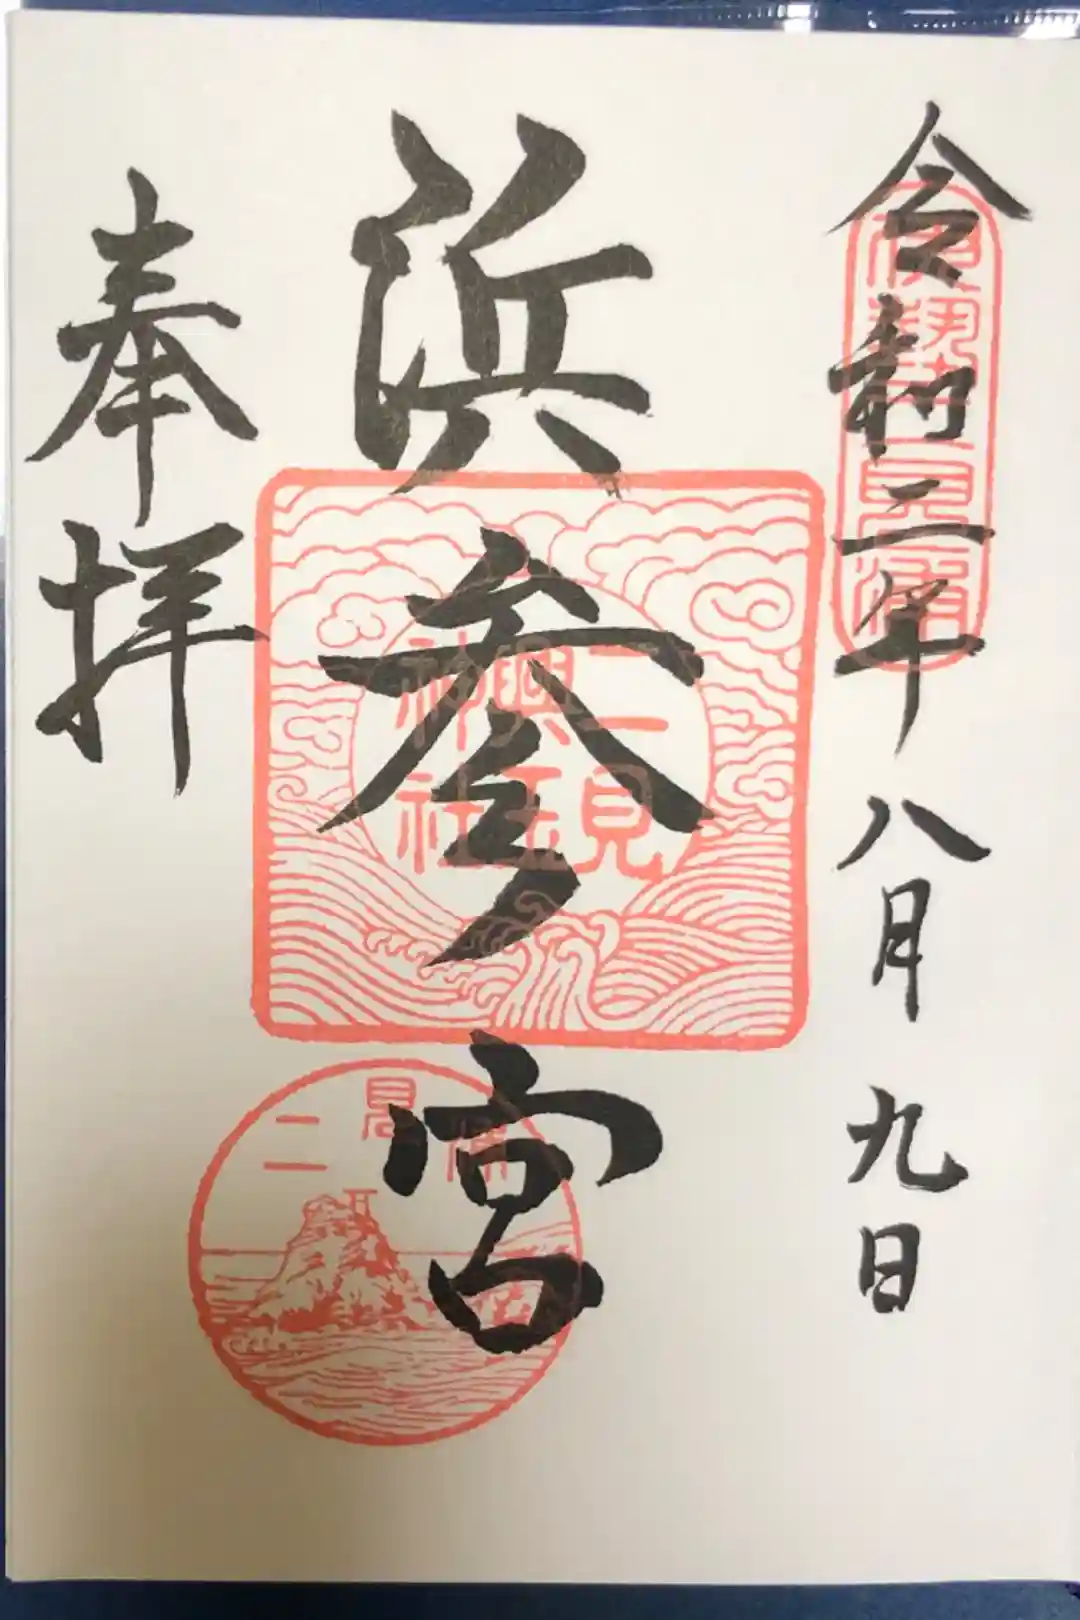 令和二年八月九日
伊勢二見浦
浜参宮
二見
興玉
神社
二見浦
奉拝